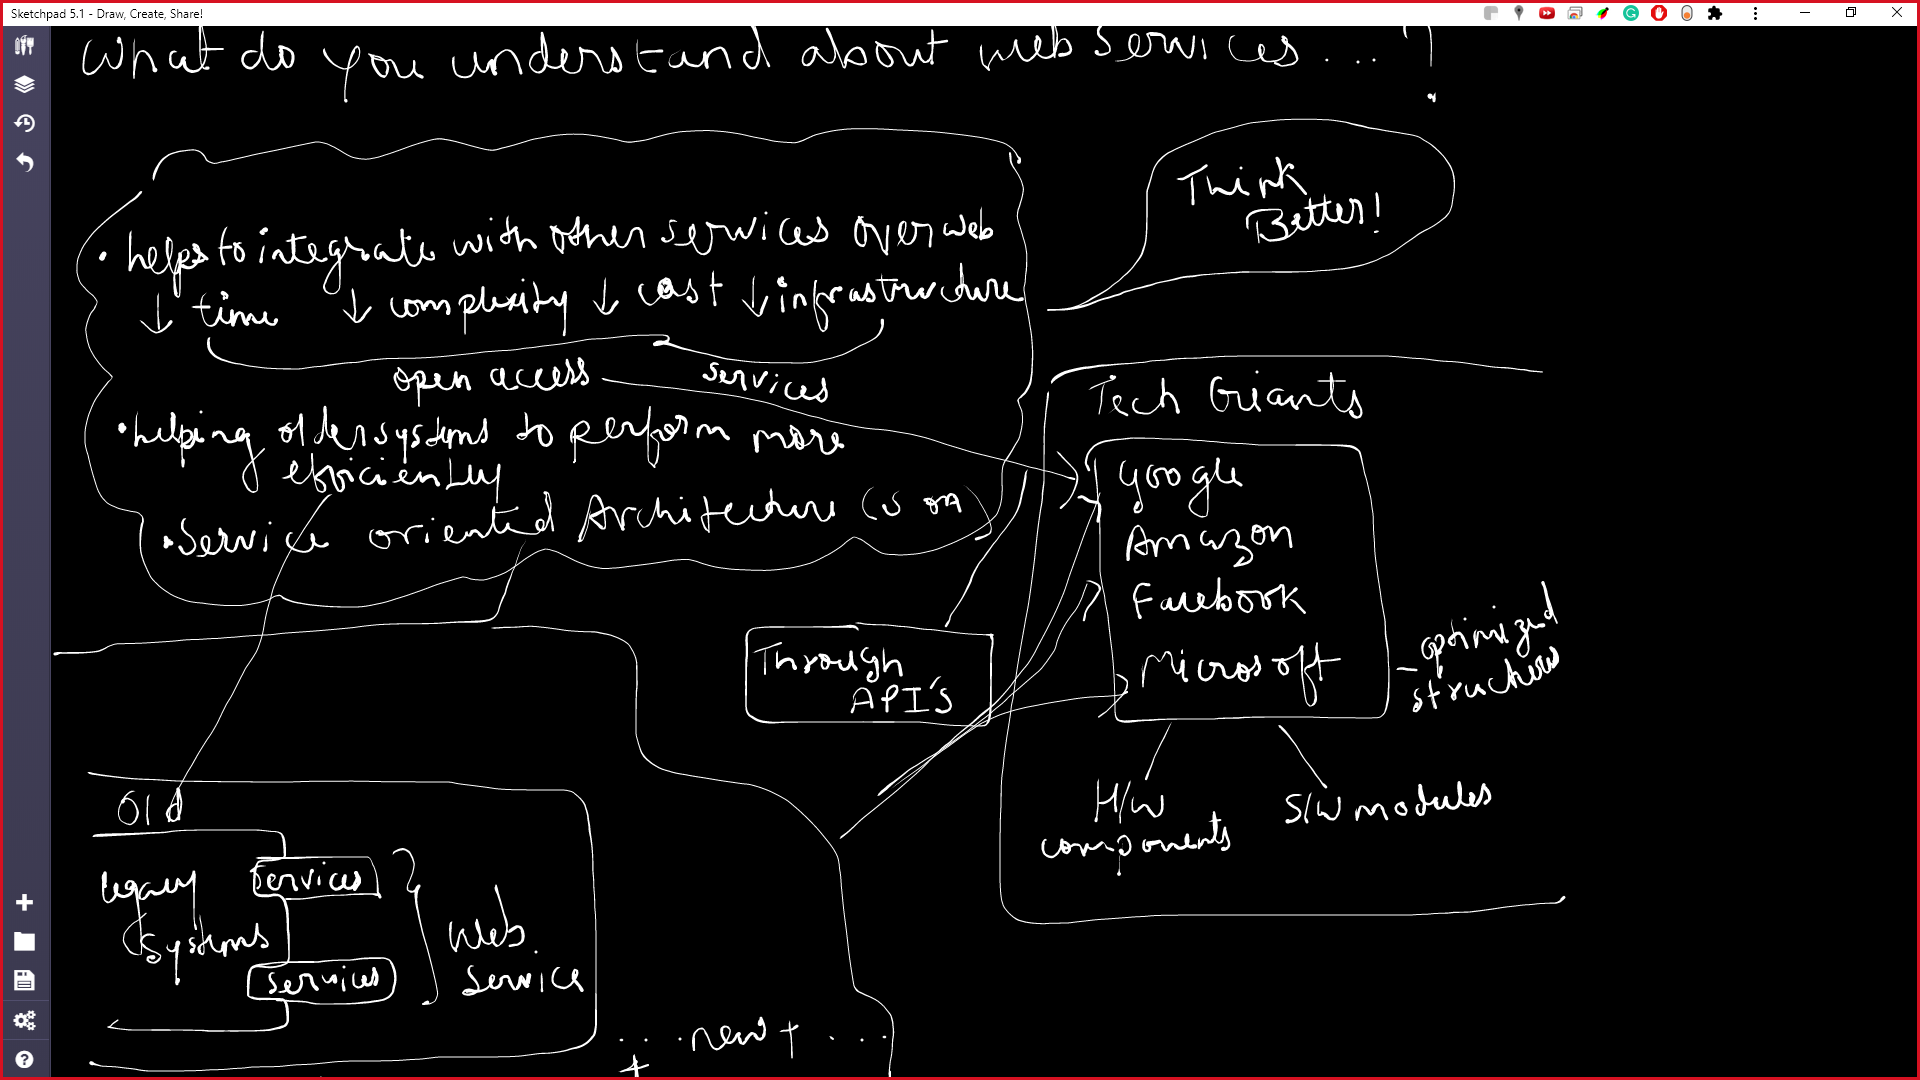 Sketchpad 5.1 - Draw, Create, Share!
What do you understand about web services...?
Think
Better!
• helps to integrate with other services over web
↓ time ↓ complexity ↓ cost ↓ infrastructure
open access services
• helping older systems to perform more
efficiently
• Service oriented Architecture (SOA)
Tech Giants
Google
Amazon
Facebook
Microsoft
- optimized
structures
Through
API's
H/W
components
S/W modules
Old
legacy
systems
services
services
Web
Service
... new + ...
+